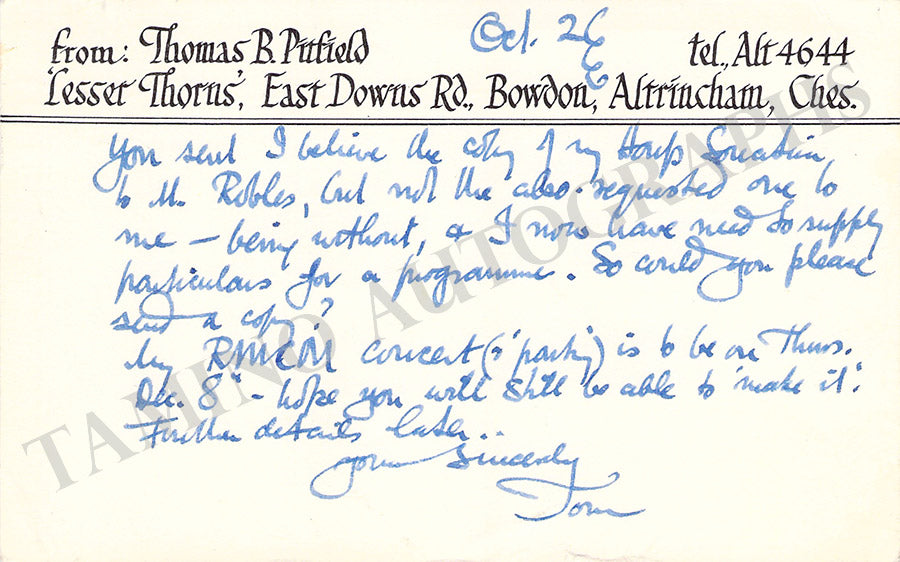 from: Thomas B. Pitfield
Oct. 26
tel., Alt 4644
'Lesser Thorns', East Downs Rd., Bowdon, Altrincham, Ches.
You sent I believe the copy of my Harp Sonatina,
to M. Robles, but not the also-requested one to
me – being without, & I now have need to supply
particulars for a programme. So could you please
send a copy?
My RMCM concert (& 'party') is to be on Thurs.
Dec. 8th - hope you will still be able to 'make it'.
Further details later..
yours sincerely
Tom
TAMINO AUTOGRAPHS